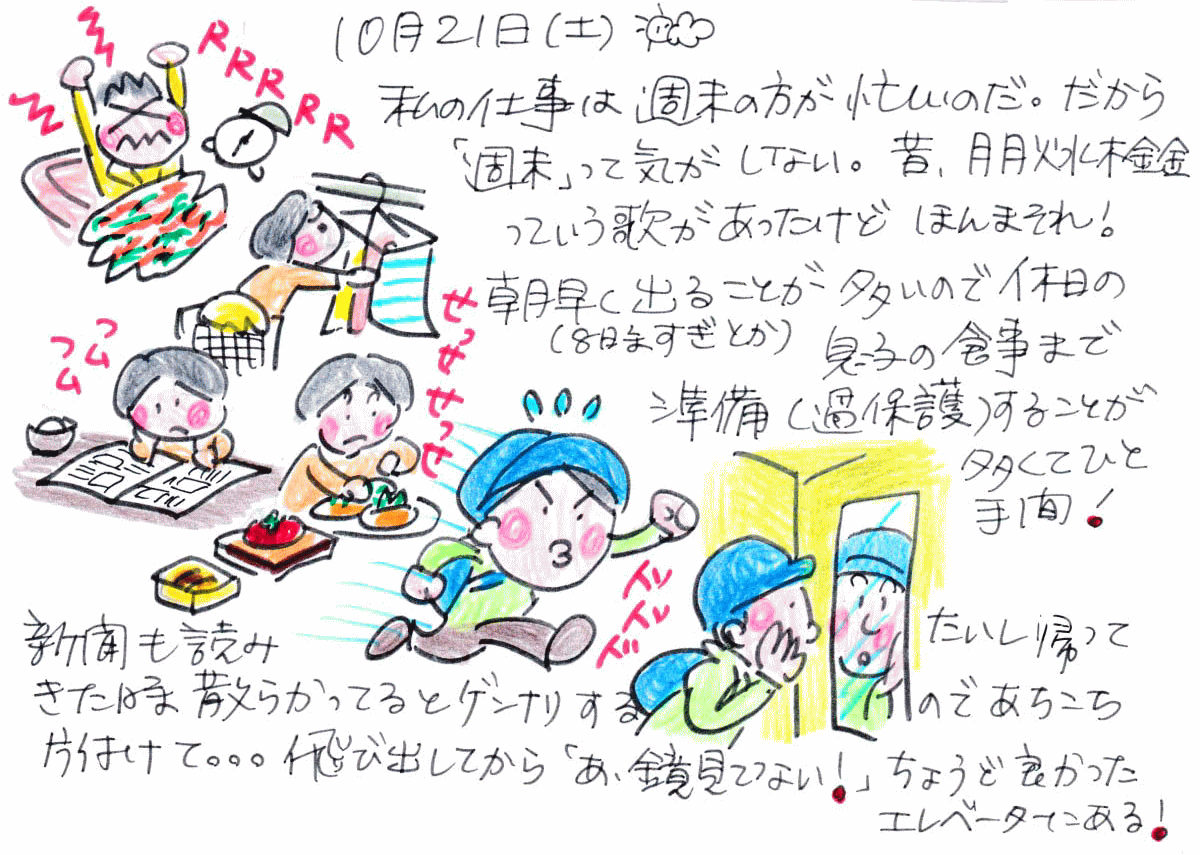 10月21日(土)
私の仕事は週末の方が忙しいのだ。だから
「週末」って気がしてない。昔、月月火水木金金
っていう歌があったけど ほんまそれ！
朝早く出ることが多いので休日の
(8時すぎとか) 息子の食事まで
準備(過保護)することが
多くてひと
手間！
新聞も読み たいし帰って
きた時 散らかってるとゲンナリする ので あちこち
片付けて。。。飛び出してから「あ、鏡見てない！」ちょうど良かった
エレベーターにある！
RRRRRR
フムフム
せっせせっせ